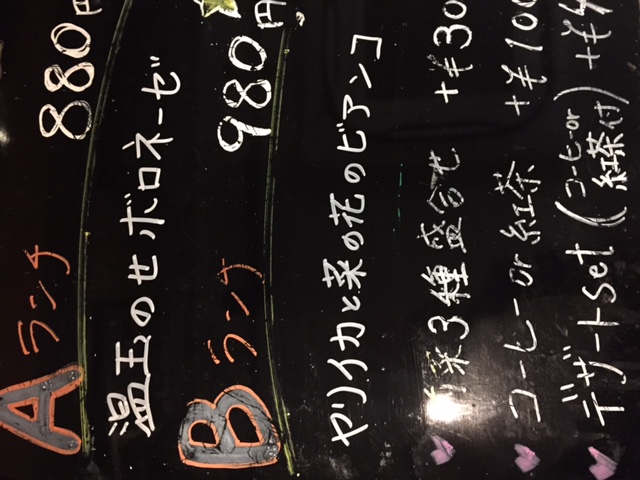 Aランチ 880円
温玉のせボロネーゼ
Bランチ 980円
ヤリイカと菜の花のビアンコ
菜3種盛合せ +¥30
コーヒー or 紅茶 +¥100
デザートset (コーヒー or 紅茶付) +¥